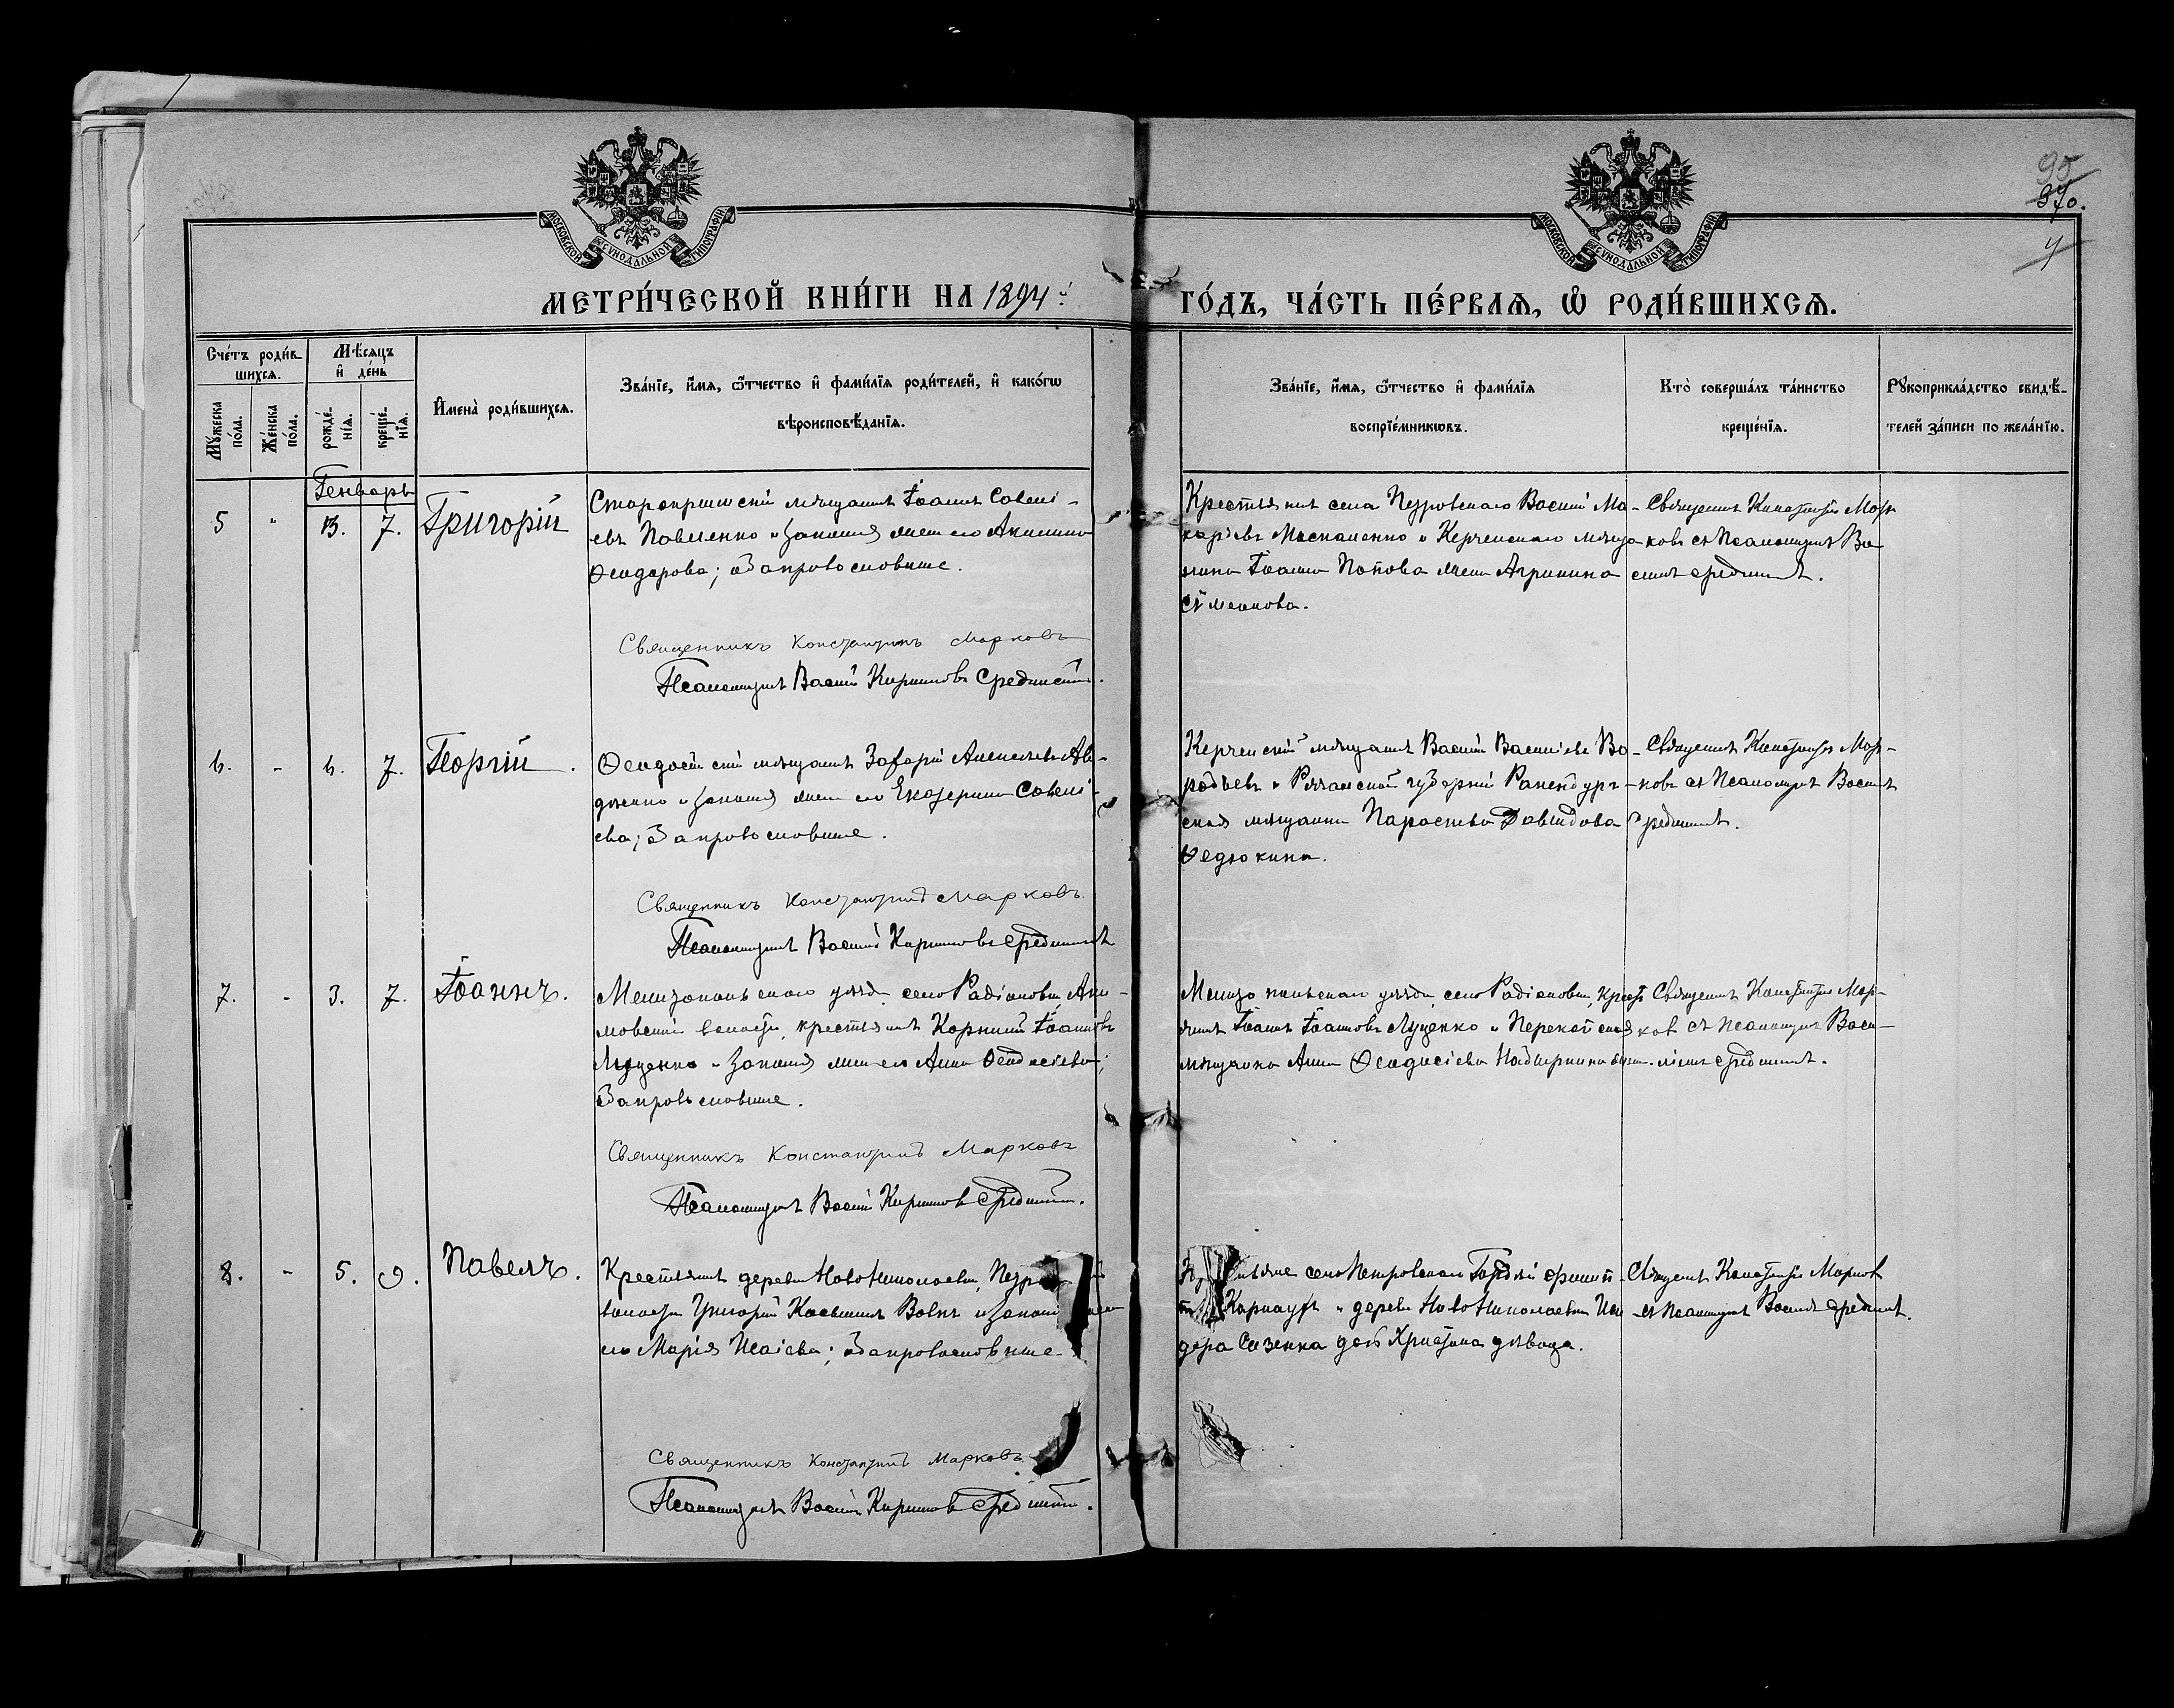 МОСКОВСКОЙ СѴНОДАЛЬНОЙ ТИПОГРАФІИ
МОСКОВСКОЙ СѴНОДАЛЬНОЙ ТИПОГРАФІИ
95
370.
МЕТРИ́ЧЕСКОЙ КНИ́ГИ НА 1894й
ГО́ДЪ, ЧА́СТЬ ПЕ́РВАЯ, Ѡ҆ РОДИ́ВШИХСЯ.
Сче́тъ роди́в
шихся.
Мѣ́сяцъ
и҆ де́нь
Мꙋ́жеска
по́ла.
Же́нска
по́ла.
рожде́-
нїя.
креще́-
нїя.
И҆мена̀ роди́вшихся.
Зва́нїе, и҆́мя, ѻ҆́тчество и҆ фами́лїя роди́телей, и҆ како́гѡ
вѣроисповѣ́данїя.
Зва́нїе, и҆́мя, ѻ҆́тчество и҆ фами́лїя
воспрїе́мникѡвъ.
Кто̀ соверша́лъ та́инство
креще́нїя.
Рꙋкоприкла́дство свидѣ́-
телей за́писи по жела́нїю.
Генварь
5 - 3. 7. Григорій
Старокрымскій мѣщанинъ Іоаннъ Савелі-
евъ Павленко и законная жена его Акилина
Ѳеодорова; оба православные.
Священникъ Константинъ Марковъ
Псаломщикъ Василій Кириловъ Срединскій.
Крестьянинъ села Петровскаго Василій Ма-
каріевъ и Керченскаго мѣща-
нина Іоанна Попова жена Агрипина
Симеонова.
Священникъ Константинъ Мар-
ковъ съ Псаломщикомъ Ва-
Срединскимъ.
6. - 6. 7. Георгій.
Ѳеодосійскій мѣщанинъ Захарій Алексѣевъ Ав-
дѣенко и законная жена его Екатерина Савелі-
ева; оба православные.
Священникъ Константинъ Марковъ.
Псаломщикъ Василій Кириловъ Срединскій
Керченскій мѣщанинъ Василій Василіевъ Во-
робьевъ и Рязанской губерніи Раненбург-
ская мѣщанка Параскева Давидова
Ѳедюкина.
Священникъ Константинъ Мар-
ковъ съ Псаломщикомъ Василіемъ
Срединскимъ.
7. - 3. 7. Іоаннъ.
Мелитопольскаго уѣзда, села Радіоновки, Аки-
мовской волости, крестьянинъ Корнилій Іоанновъ
Луценко и законная жена его Анна Ѳеодосіева;
оба православные.
Священникъ Константинъ Марковъ
Псаломщикъ Василій Кириловъ Срединскій.
Мелитопольскаго уѣзда, села Радіоновки, крест
янинъ Іоаннъ Іоанновъ Луценко и Перекопская
мѣщанка Анна Ѳеодосіева
Священникъ Константинъ Мар-
ковъ съ Псаломщикомъ Васи-
ліемъ Срединскимъ.
8. - 5. 9. Павелъ.
Крестьянинъ деревни Новониколаевки, Петр
волости Григорій Касьяновъ Волкъ и законн
его Марія Исаіева; оба православные.
Священникъ Константинъ Марковъ.
Псаломщикъ Василій Кириловъ Срединскій.
села Петровскаго Гордѣй
Карнаухъ и деревни Новониколаевки Иси-
дора Сазенка дочь Христина дѣвица.
Священникъ Константинъ Марков
съ Псаломщикомъ Василіемъ Срединским.